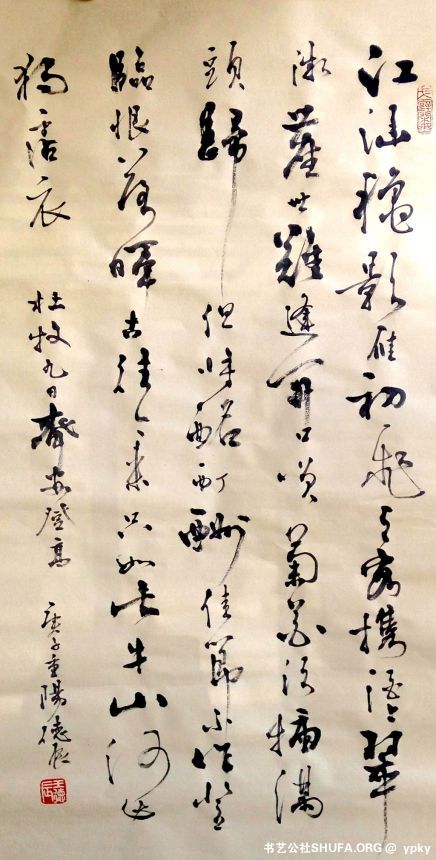 江涵穐影雁初飛与客携壺上翠
微塵世難逢開口咲菊花須插滿
頭歸但将酩酊酬佳節不作登
臨恨落暉古往今来只如此牛山何必
獨沾衣 杜牧九日齊安登高 庚子重陽德
书艺公社SHUFA.ORG @ ypky